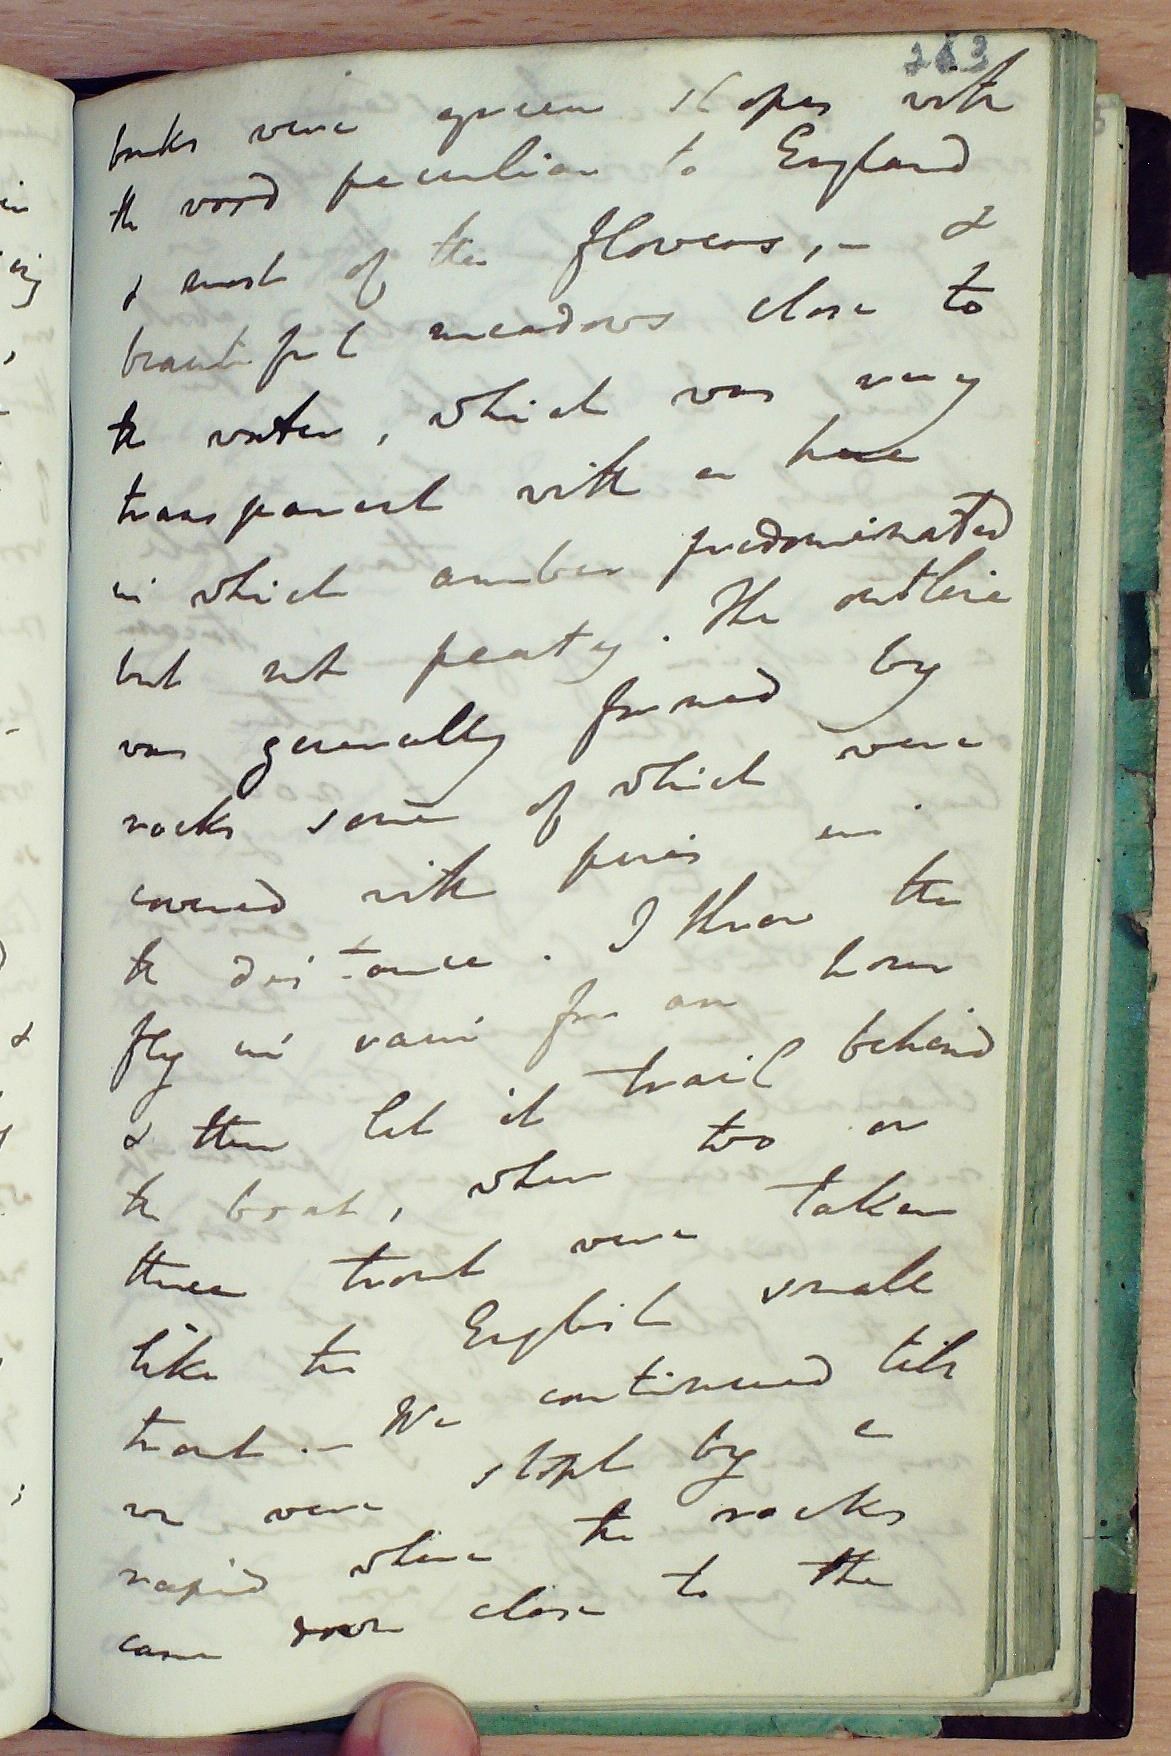 263
banks were green slopes with
the wood peculiar to England
& most of the flowers, – &
beautiful meadows close to
the water, which was very
transparent with a hue
in which amber predominated
but not peaty. The outline
was generally formed by
rocks some of which were
covered with pines in
the distance. I threw the
fly in vain for an hour
& then let it trail behind
the boat, when two or
three trout were taken
like the English small
trout. – We continued till
we were stopt by a
rapid where the rocks
came down close to the